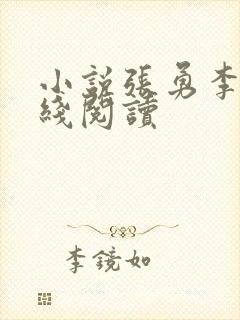 小說張勇李
綫閱讀
李鏡如